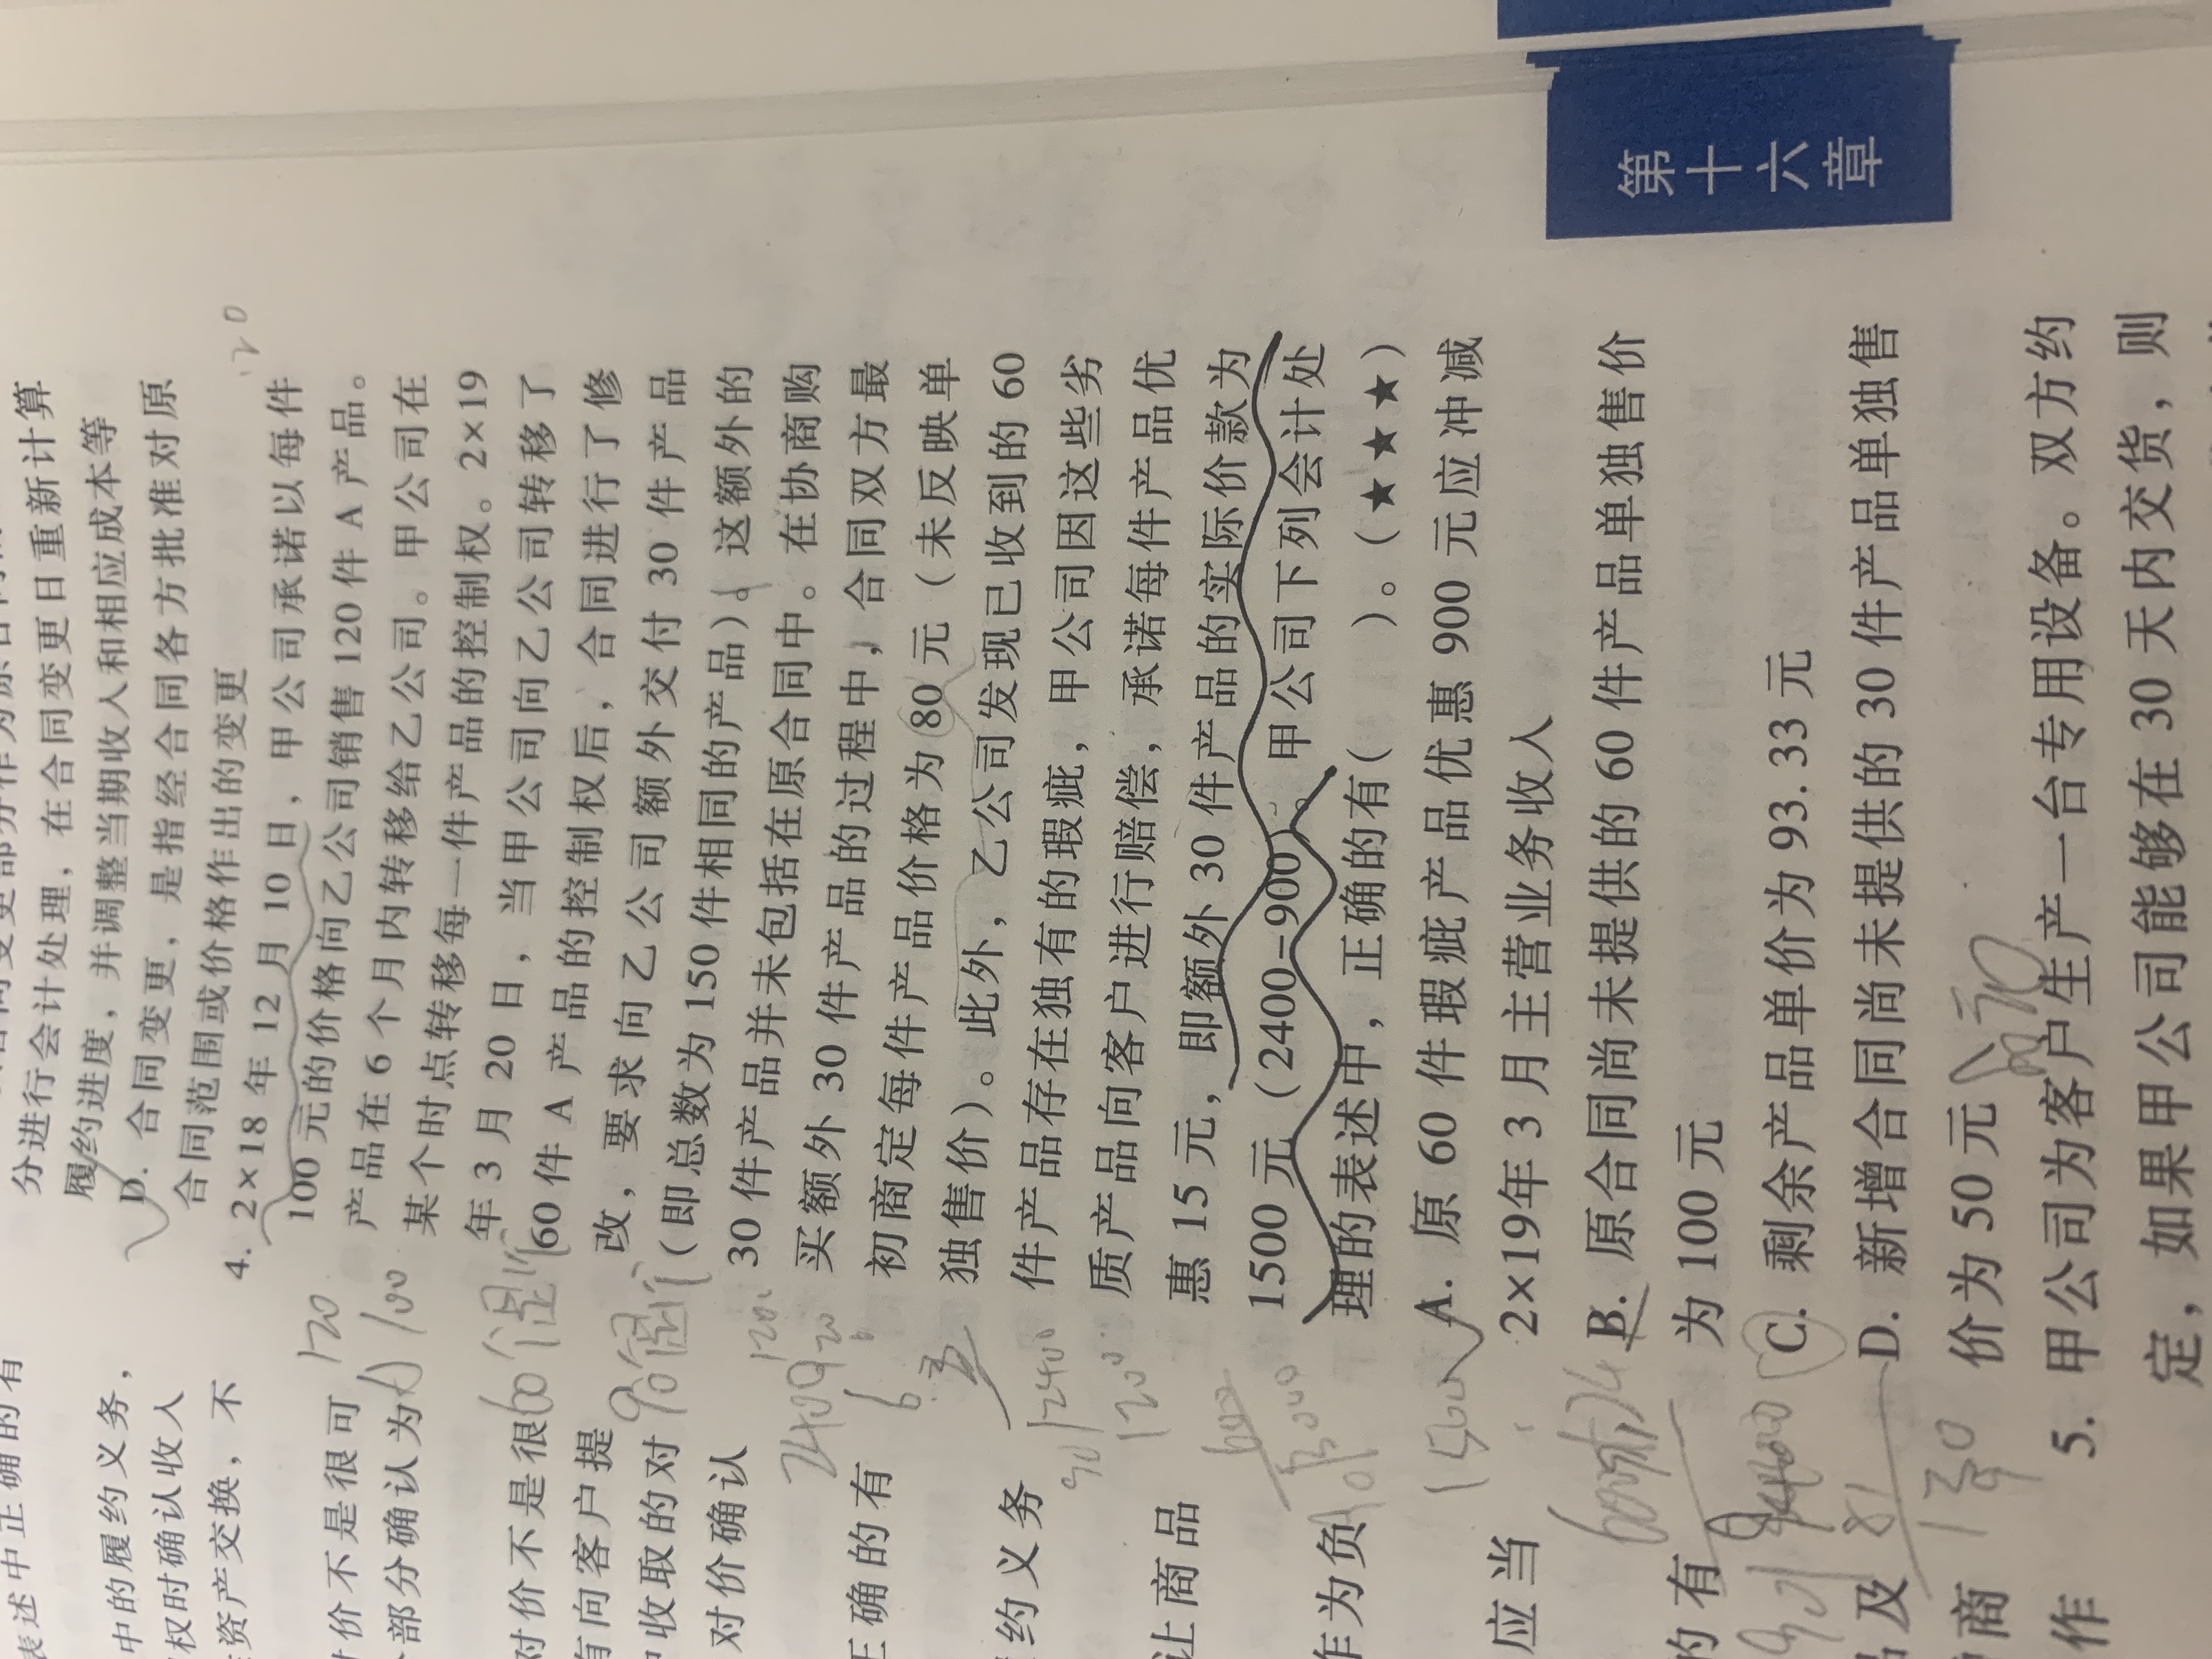 分进行会计处理，在合同变更日重新计算
履约进度，并调整当期收入和相应成本等
D. 合同变更，是指经合同各方批准对原
合同范围或价格作出的变更
4. 2×18 年 12 月 10 日，甲公司承诺以每件
100 元的价格向乙公司销售 120 件 A 产品。
产品在 6 个月内转移给乙公司。甲公司在
某个时点转移每一件产品的控制权。2×19
年 3 月 20 日，当甲公司向乙公司转移了
60 件 A 产品的控制权后，合同进行了修
改，要求向乙公司额外交付 30 件产品
（即总数为 150 件相同的产品）。这额外的
30 件产品并未包括在原合同中。在协商购
买额外 30 件产品的过程中，合同双方最
初商定每件产品价格为 80 元（未反映单
独售价）。此外，乙公司发现已收到的 60
件产品存在独有的瑕疵，甲公司因这些劣
质产品向客户进行赔偿，承诺每件产品优
惠 15 元，即额外 30 件产品的实际价款为
1500 元（2400-900）。甲公司下列会计处
理的表述中，正确的有（ ）。（★★★）
A. 原 60 件瑕疵产品优惠 900 元应冲减
2×19年 3 月主营业务收入
B. 原合同尚未提供的 60 件产品单独售价
为 100 元
C. 剩余产品单价为 93.33 元
D. 新增合同尚未提供的 30 件产品单独售
价为 50 元
5. 甲公司为客户生产一台专用设备。双方约
定，如果甲公司能够在 30 天内交货，则
第十六章
表述中正确的有
中的履约义务，
权时确认收入
资产交换，不
价不是很可
部分确认为
对价不是很
有向客户提
收取的对
对价确认
正确的有
约义务
让商品
作为负
应当
的有
品及
商
作
120
100